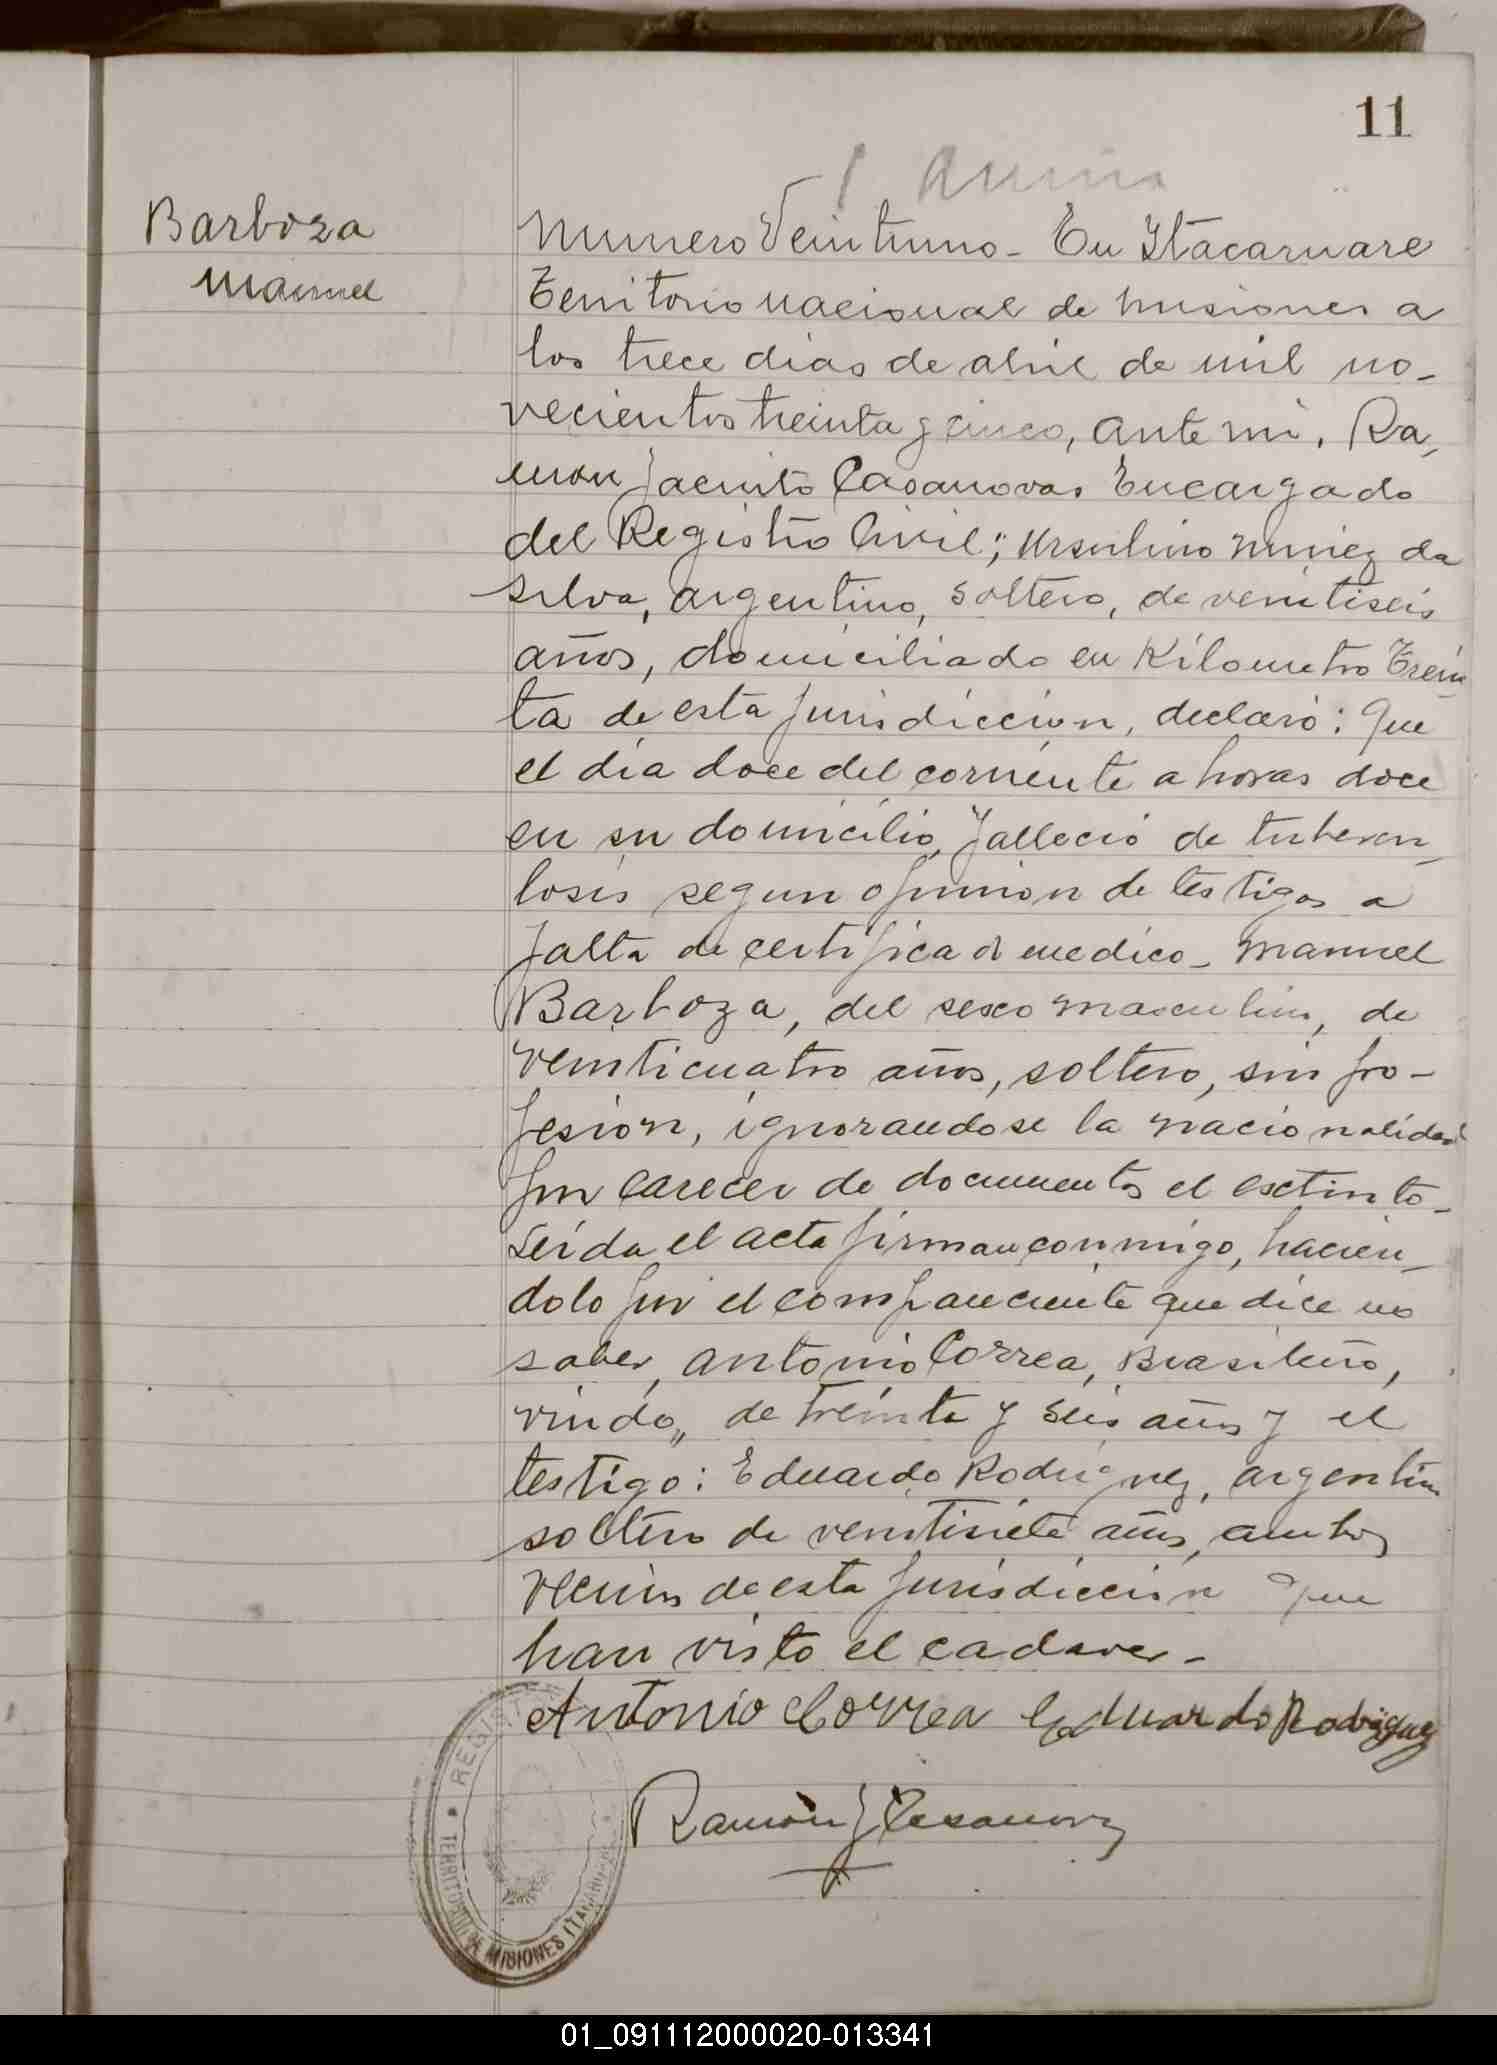 11
Barboza
Manuel
Numero Veintiuno - En Itacaruare
Territorio nacional de Misiones a
los trece dias de abril de mil no-
vecientos treinta y cinco, ante mi, Ra-
mon Jacinto Casanovas Encargado
del Registro Civil; Ursulino Nuñez da
Silva, argentino, soltero, de veintiseis
años, domiciliado en Kilometro Trein-
ta de esta jurisdiccion, declaró: Que
el dia doce del corriente a horas doce
en su domicilio, falleció de tubercu-
losis segun opinion de testigos a
falta de certificado medico - Manuel
Barboza, del sexo masculino, de
veinticuatro años, soltero, sin pro-
fesion, ignorandose la nacionalidad
por carecer de documentos el extinto -
Leida el acta firman conmigo, hacien-
dolo por el compareciente que dice no
saber, Antonio Correa, Brasileño,
viudo,, de treinta y seis años y el
testigo: Eduardo Rodriguez, argentino
soltero de veintisiete años, ambos
vecinos de esta jurisdiccion que
han visto el cadaver -
Antonio Correa Eduardo Rodriguez
Ramón J Casanovas
TERRITORIO DE MISIONES ITACARUARE
01_091112000020-013341